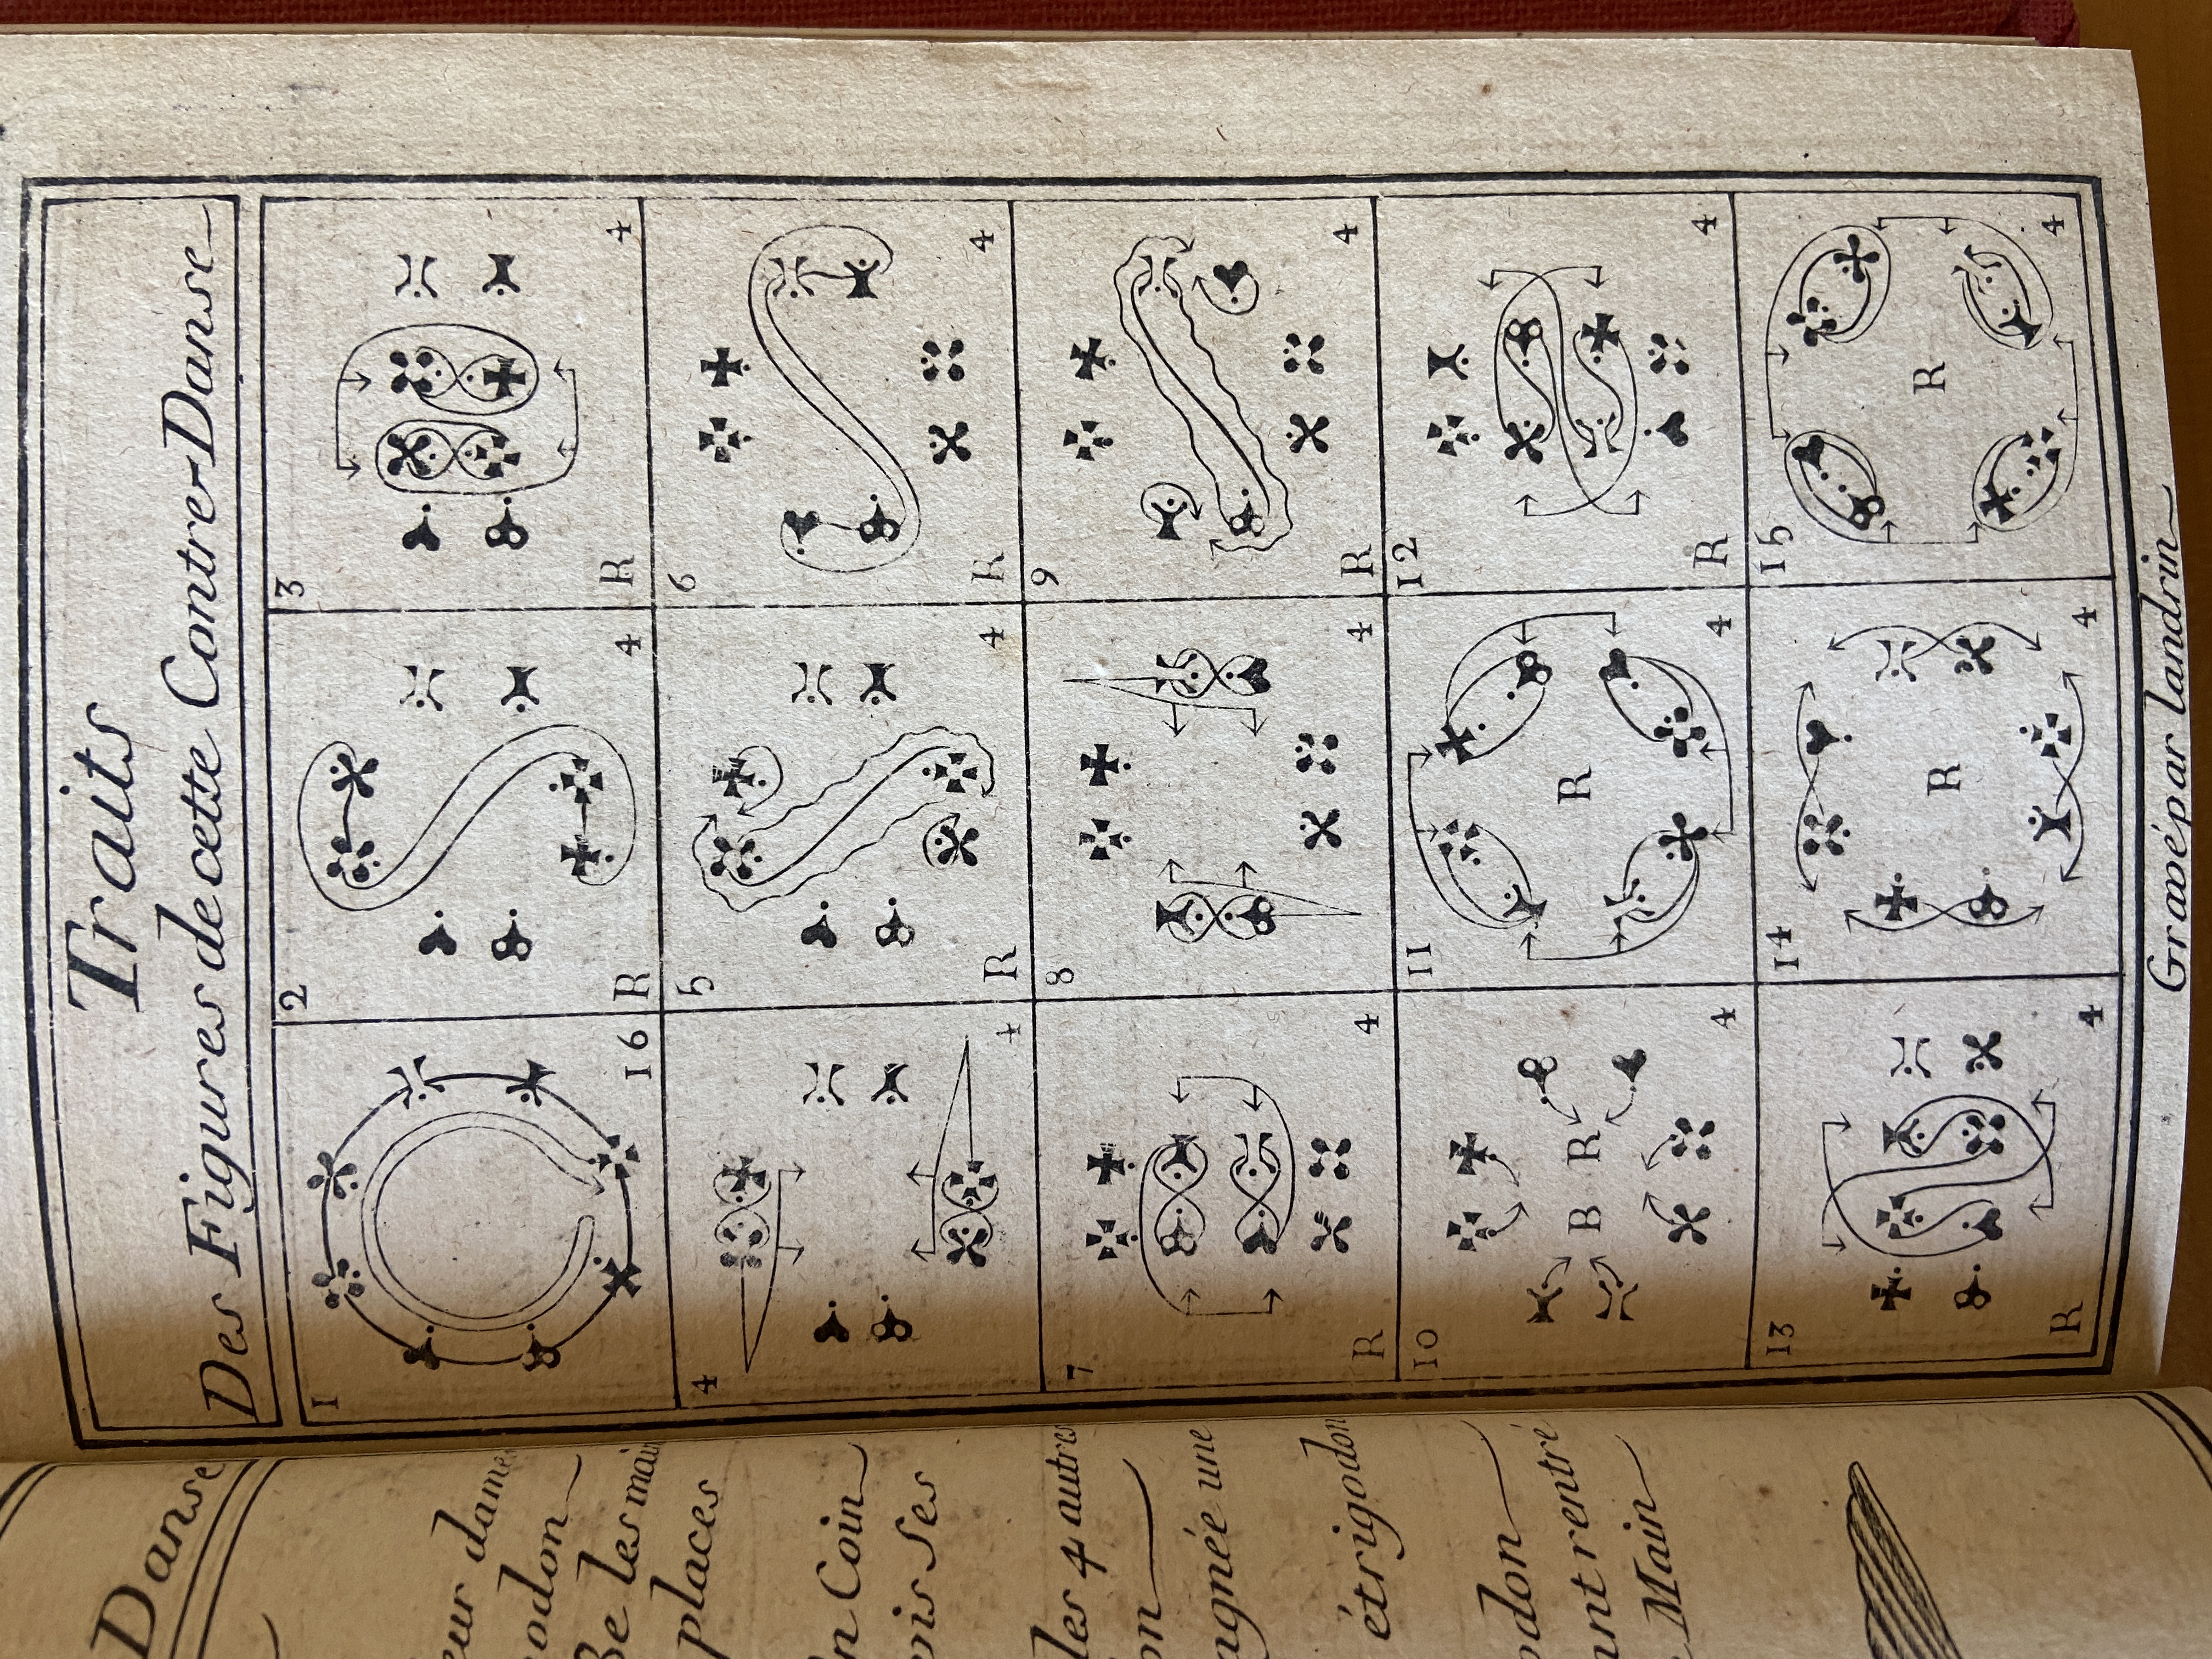 Traits
Des Figures de cette Contre-Danse
1 16
2 R 4
3 R 4
4 4
5 R 4
6 R 4
7 R 4
8 4
9 R 4
10 B R 4
11 R 4
12 R 4
13 R 4
14 R 4
15 R 4
Gravé par Landrin
Danse
eur dame
odon
Be les main
places
n Coin
ois ses
les 4 autres
on
agnée une
étrigodon
odon
ant rentré
e Main